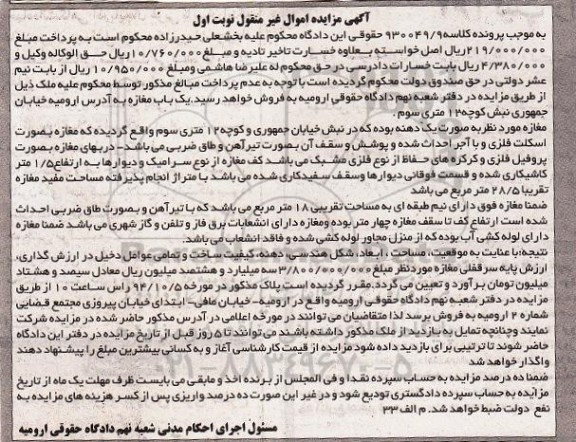 آگهی مزایده اموال غیر منقول نوبت اول
به موجب پرونده کلاسه۹۳۰۰۴۹/۹ حقوقی این دادگاه محکوم علیه بخشعلی حیدرزاده محکوم است به پرداخت مبلغ
۲۱۹/۰۰۰/۰۰۰ریال اصل خواسته بعلاوه خسارت تاخیر تادیه و مبلغ۱۰/۷۶۰/۰۰۰ ریال حق الوکاله وکیل و
۴/۳۸۰/۰۰۰ ریال بابت خسارات دادرسی در حق محکوم له علیرضا هاشمی ومبلغ ۱۰/۹۵۰/۰۰۰ریال از بابت نیم
عشر دولتی در حق صندوق دولت محکوم گردیده است با توجه به عدم پرداخت مبالغ مذکور توسط محکوم علیه ملک ذیل
از طریق مزایده در دفتر شعبه نهم دادگاه حقوقی ارومیه به فروش خواهد رسید.یک باب مغازه به آدرس ارومیه خیابان
جمهوری نبش کوچه۱۲ متری سوم .
مغازه مورد نظر به صورت یک دهنه بوده که در نبش خیابان جمهوری و کوچه۱۲ متری سوم واقع گردیده که مغازه بصورت
اسکلت فلزی و با آجر احداث شده و پوشش و سقف آن بصورت تیرآهن و طاق ضربی می باشد- دربهای مغازه بصورت
پروفیل فلزی و کرکره های حفاظ از نوع فلزی مشبک می باشد کف مغازه از نوع سرامیک و دیوارها به ارتفاع۱/۵ متر
کاشیکاری شده و قسمت فوقانی دیوارها وسقف سفیدکاری شده می باشد با متراژ انجام پذیرفته مساحت مفید مغازه
تقریبا ۲۸/۵ متر مربع می باشد
ضمنا مغازه فوق دارای نیم طبقه ای به مساحت تقریبی ۱۸ متر مربع می باشد که با تیرآهن و بصورت طاق ضربی احداث
شده است ارتفاع کف تا سقف مغازه چهار متر بوده ومغازه دارای انشعابات برق فاز و تلفن و گاز شهری می باشد ضمنا مغازه
دارای لوله کشی آب بوده که از منزل مجاور لوله کشی شده و فاقد انشعاب می باشد.
نتیجه:با عنایت به موقعیت، مساحت ، ابعاد، شکل هندسی، دهنه، کیفیت ساخت و تمامی عوامل دخیل در ارزش گذاری،
ارزش پایه سرقفلی مغازه موردنظر مبلغ ۳/۸۰۰/۰۰۰/۰۰۰سه میلیارد و هشتصد میلیون ریال معادل سیصد و هشتاد
میلیون تومان برآورد و تعیین می گردد.مقرر گردیده است پلاک مذکور در مورخه ۹۴/۱۰/۵ راس ساعت ۱۰ از طریق
مزایده در دفتر شعبه نهم دادگاه حقوقی ارومیه واقع در ارومیه- خیابان مافی- ابتدای خیابان پیروزی مجتمع قضایی
شماره ۲ ارومیه به فروش برسد لذا متقاضیان می توانند در مورخه اعلامی در آدرس مذکور حاضر شده در مزایده شرکت
نمایند وچنانچه تمایل به بازدید از ملک مذکور داشته باشند می توانند تا ۵ روز قبل از تاریخ مزایده در دفتر این دادگاه
حاضر شوند تا ترتیبی برای بازدید داده شود مزایده از قیمت کارشناسی آغاز و به کسانی بیشترین مبلغ را پیشنهاد دهند
واگذار خواهد شد
ضمنا ده درصد مزایده به حساب سپرده نقدا و فی المجلس از برنده اخذ و مابقی می بایست ظرف مهلت یک ماه از تاریخ
مزایده به حساب سپرده دادگستری تودیع شود و در غیر این صورت ده درصد واریزی پس از کسر هزینه های مزایده به
نفع دولت ضبط خواهد شد. م الف ۳۳
مسئول اجرای احکام مدنی شعبه نهم دادگاه حقوقی ارومیه